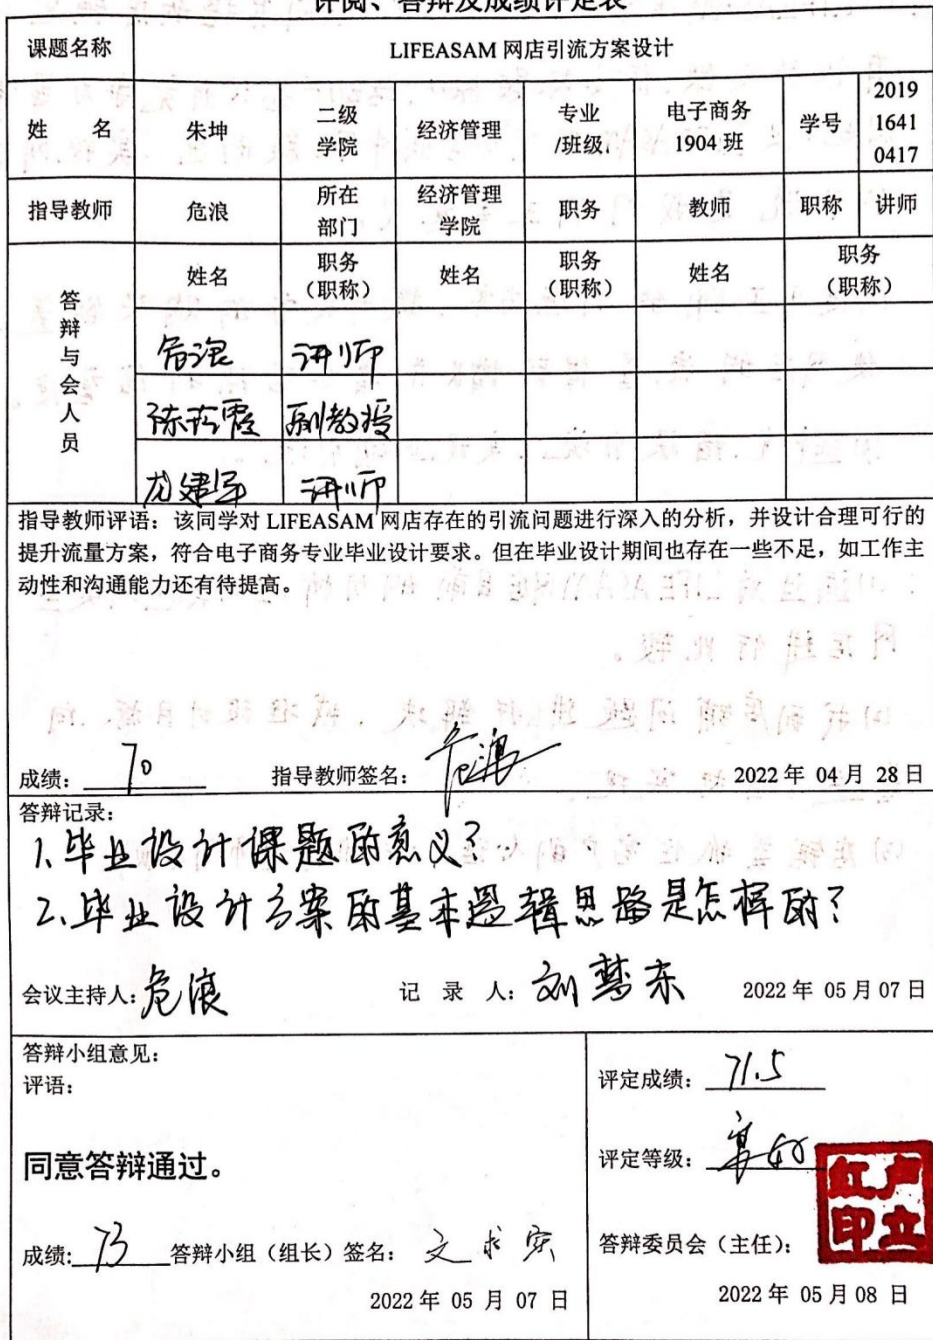 评阅、答辩及成绩评定表
课题名称 LIFEASAM 网店引流方案设计
姓 名 朱坤 二级学院 经济管理 专业/班级 电子商务1904 班 学号 201916410417
指导教师 危浪 所在部门 经济管理学院 职务 教师 职称 讲师
答辩与会人员 姓名 职务（职称） 姓名 职务（职称） 姓名 职务（职称）
危浪 讲师
陈 霞 副教授
龙建军 讲师
指导教师评语：该同学对 LIFEASAM 网店存在的引流问题进行深入的分析，并设计合理可行的
提升流量方案，符合电子商务专业毕业设计要求。但在毕业设计期间也存在一些不足，如工作主
动性和沟通能力还有待提高。
成绩：70 指导教师签名：危浪 2022 年 04 月 28 日
答辩记录：
1.毕业设计课题的意义？
2.毕业设计方案的基本逻辑思路是怎样的？
会议主持人：危浪 记 录 人：刘慧东 2022 年 05 月 07 日
答辩小组意见：
评语：
同意答辩通过。
成绩：73 答辩小组（组长）签名：文求实
2022 年 05 月 07 日
评定成绩：71.5
评定等级：
答辩委员会（主任）：
卢立红印
2022 年 05 月 08 日